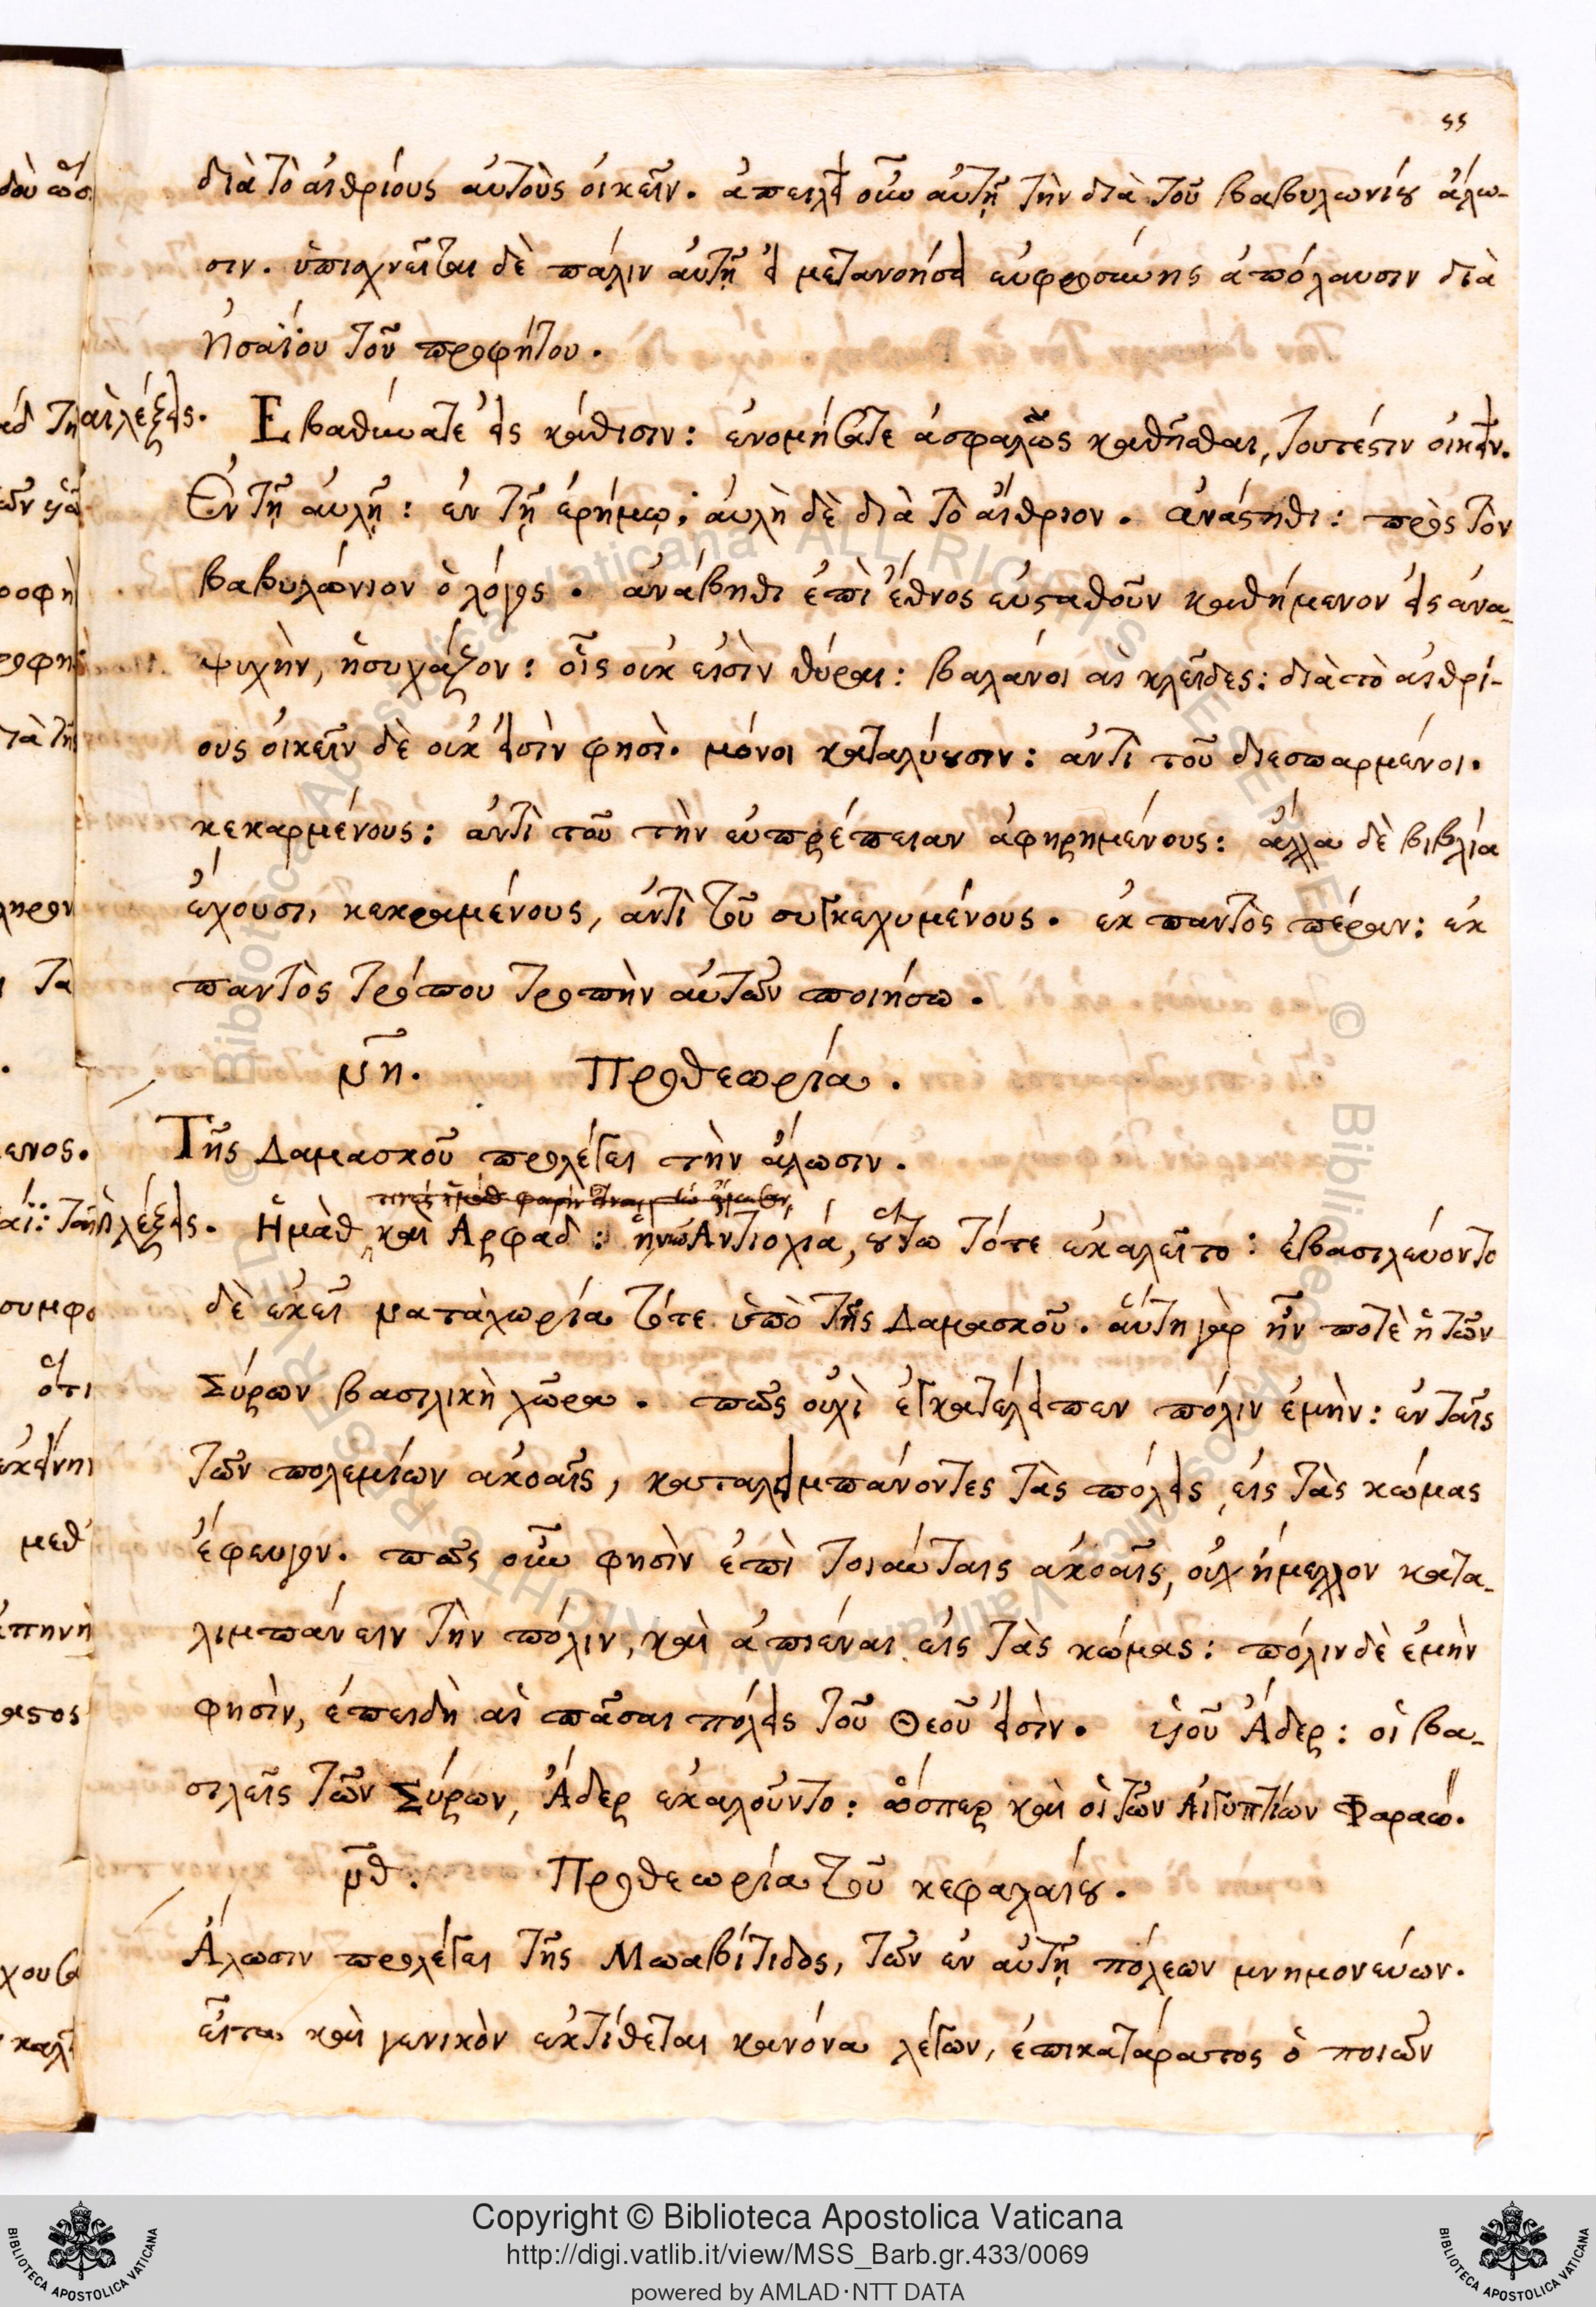 55
διὰ τὸ αἰθρίους αὐτοὺς οἰκεῖν. ἀπειλεῖ οὖν αὐτῇ τὴν διὰ τοῦ βαβυλωνίου ἅλω-
σιν. ὑπισχνεῖται δὲ πάλιν αὐτῇ εἰ μετανοήσει εὐφροσύνης ἀπόλαυσιν διὰ
Ἠσαΐου τοῦ προφήτου.
αἱ λέξεις. Εβαθύνατε εἰς κάθισιν: ἐνομήσατε ἀσφαλῶς καθῆσθαι, τουτέστιν οἰκεῖν.
Ἐν τῇ αὐλῇ: ἐν τῇ ἐρήμῳ· αὐλὴ δὲ διὰ τὸ αἴθριον. ἀνάστηθι: πρὸς τὸν
βαβυλώνιον ὁ λόγος. ἀνάβηθι ἐπὶ ἔθνος εὐσταθοῦν καθήμενον εἰς ἀνα-
ψυχὴν, ἡσυχάζον: οἷς οὐκ εἰσὶν θύραι: βαλάνοι αἱ κλεῖδες: διὰ τὸ αἰθρί-
ους οἰκεῖν δὲ οὐκ εἰσὶν φησὶ. μόνοι καταλύουσιν: ἀντὶ τοῦ διεσπαρμένοι.
κεκαρμένους: ἀντὶ τοῦ τὴν εὐπρέπειαν ἀφηρημένους: ἄλλα δὲ βιβλία
ἔχουσι, κεκραμένους, ἀντὶ τοῦ συγκεχυμένους. ἐκ παντὸς πέραν: ἐκ
παντὸς τρόπου τροπὴν αὐτῶν ποιήσω.
μη. Προθεωρία.
Τῆς Δαμασκοῦ προλέγει τὴν ἅλωσιν.
αἱ λέξεις. Ἡμὰθ καὶ Αρφάδ: ἡ νῦν Ἀντιοχία, οὕτω τότε ἐκαλεῖτο: ἐβασιλεύοντο
δὲ ἐκεῖ τότε ὑπὸ τῆς Δαμασκοῦ. αὕτη γὰρ ἦν ποτὲ ἡ τῶν
Σύρων βασιλικὴ χῶρα. πῶς οὐχὶ ἐγκατέλειπεν πόλιν ἐμὴν: ἐν ταῖς
τῶν πολεμίων ἀκοαῖς, καταλειμπάνοντες τὰς πόλεις, εἰς τὰς κώμας
ἔφευγον. πῶς οὖν φησὶν ἐπὶ τοιαύταις ἀκοαῖς, οὐχ ἤμελλον κατα-
λιμπάνειν τὴν πόλιν, καὶ ἀπιέναι εἰς τὰς κώμας: πόλιν δὲ ἐμὴν
φησὶν, ἐπειδὴ αἱ πᾶσαι πόλεις τοῦ Θεοῦ εἰσὶν. υἱοῦ Ἄδερ: οἱ βα-
σιλεῖς τῶν Σύρων, Ἄδερ ἐκαλοῦντο: ὥσπερ καὶ οἱ τῶν Αἰγυπτίων Φαραώ.
μθ. Προθεωρία τοῦ κεφαλαίου.
Ἅλωσιν προλέγει τῆς Μωαβίτιδος, τῶν ἐν αὐτῇ πόλεων μνημονεύων.
εἶτα καὶ γενικὸν ἐκτίθεται κανόνα λέγων, ἐπικατάρατος ὁ ποιῶν
Copyright © Biblioteca Apostolica Vaticana
http://digi.vatlib.it/view/MSS_Barb.gr.433/0069
powered by AMLAD·NTT DATA
BIBLIOTECA APOSTOLICA VATICANA
BIBLIOTECA APOSTOLICA VATICANA